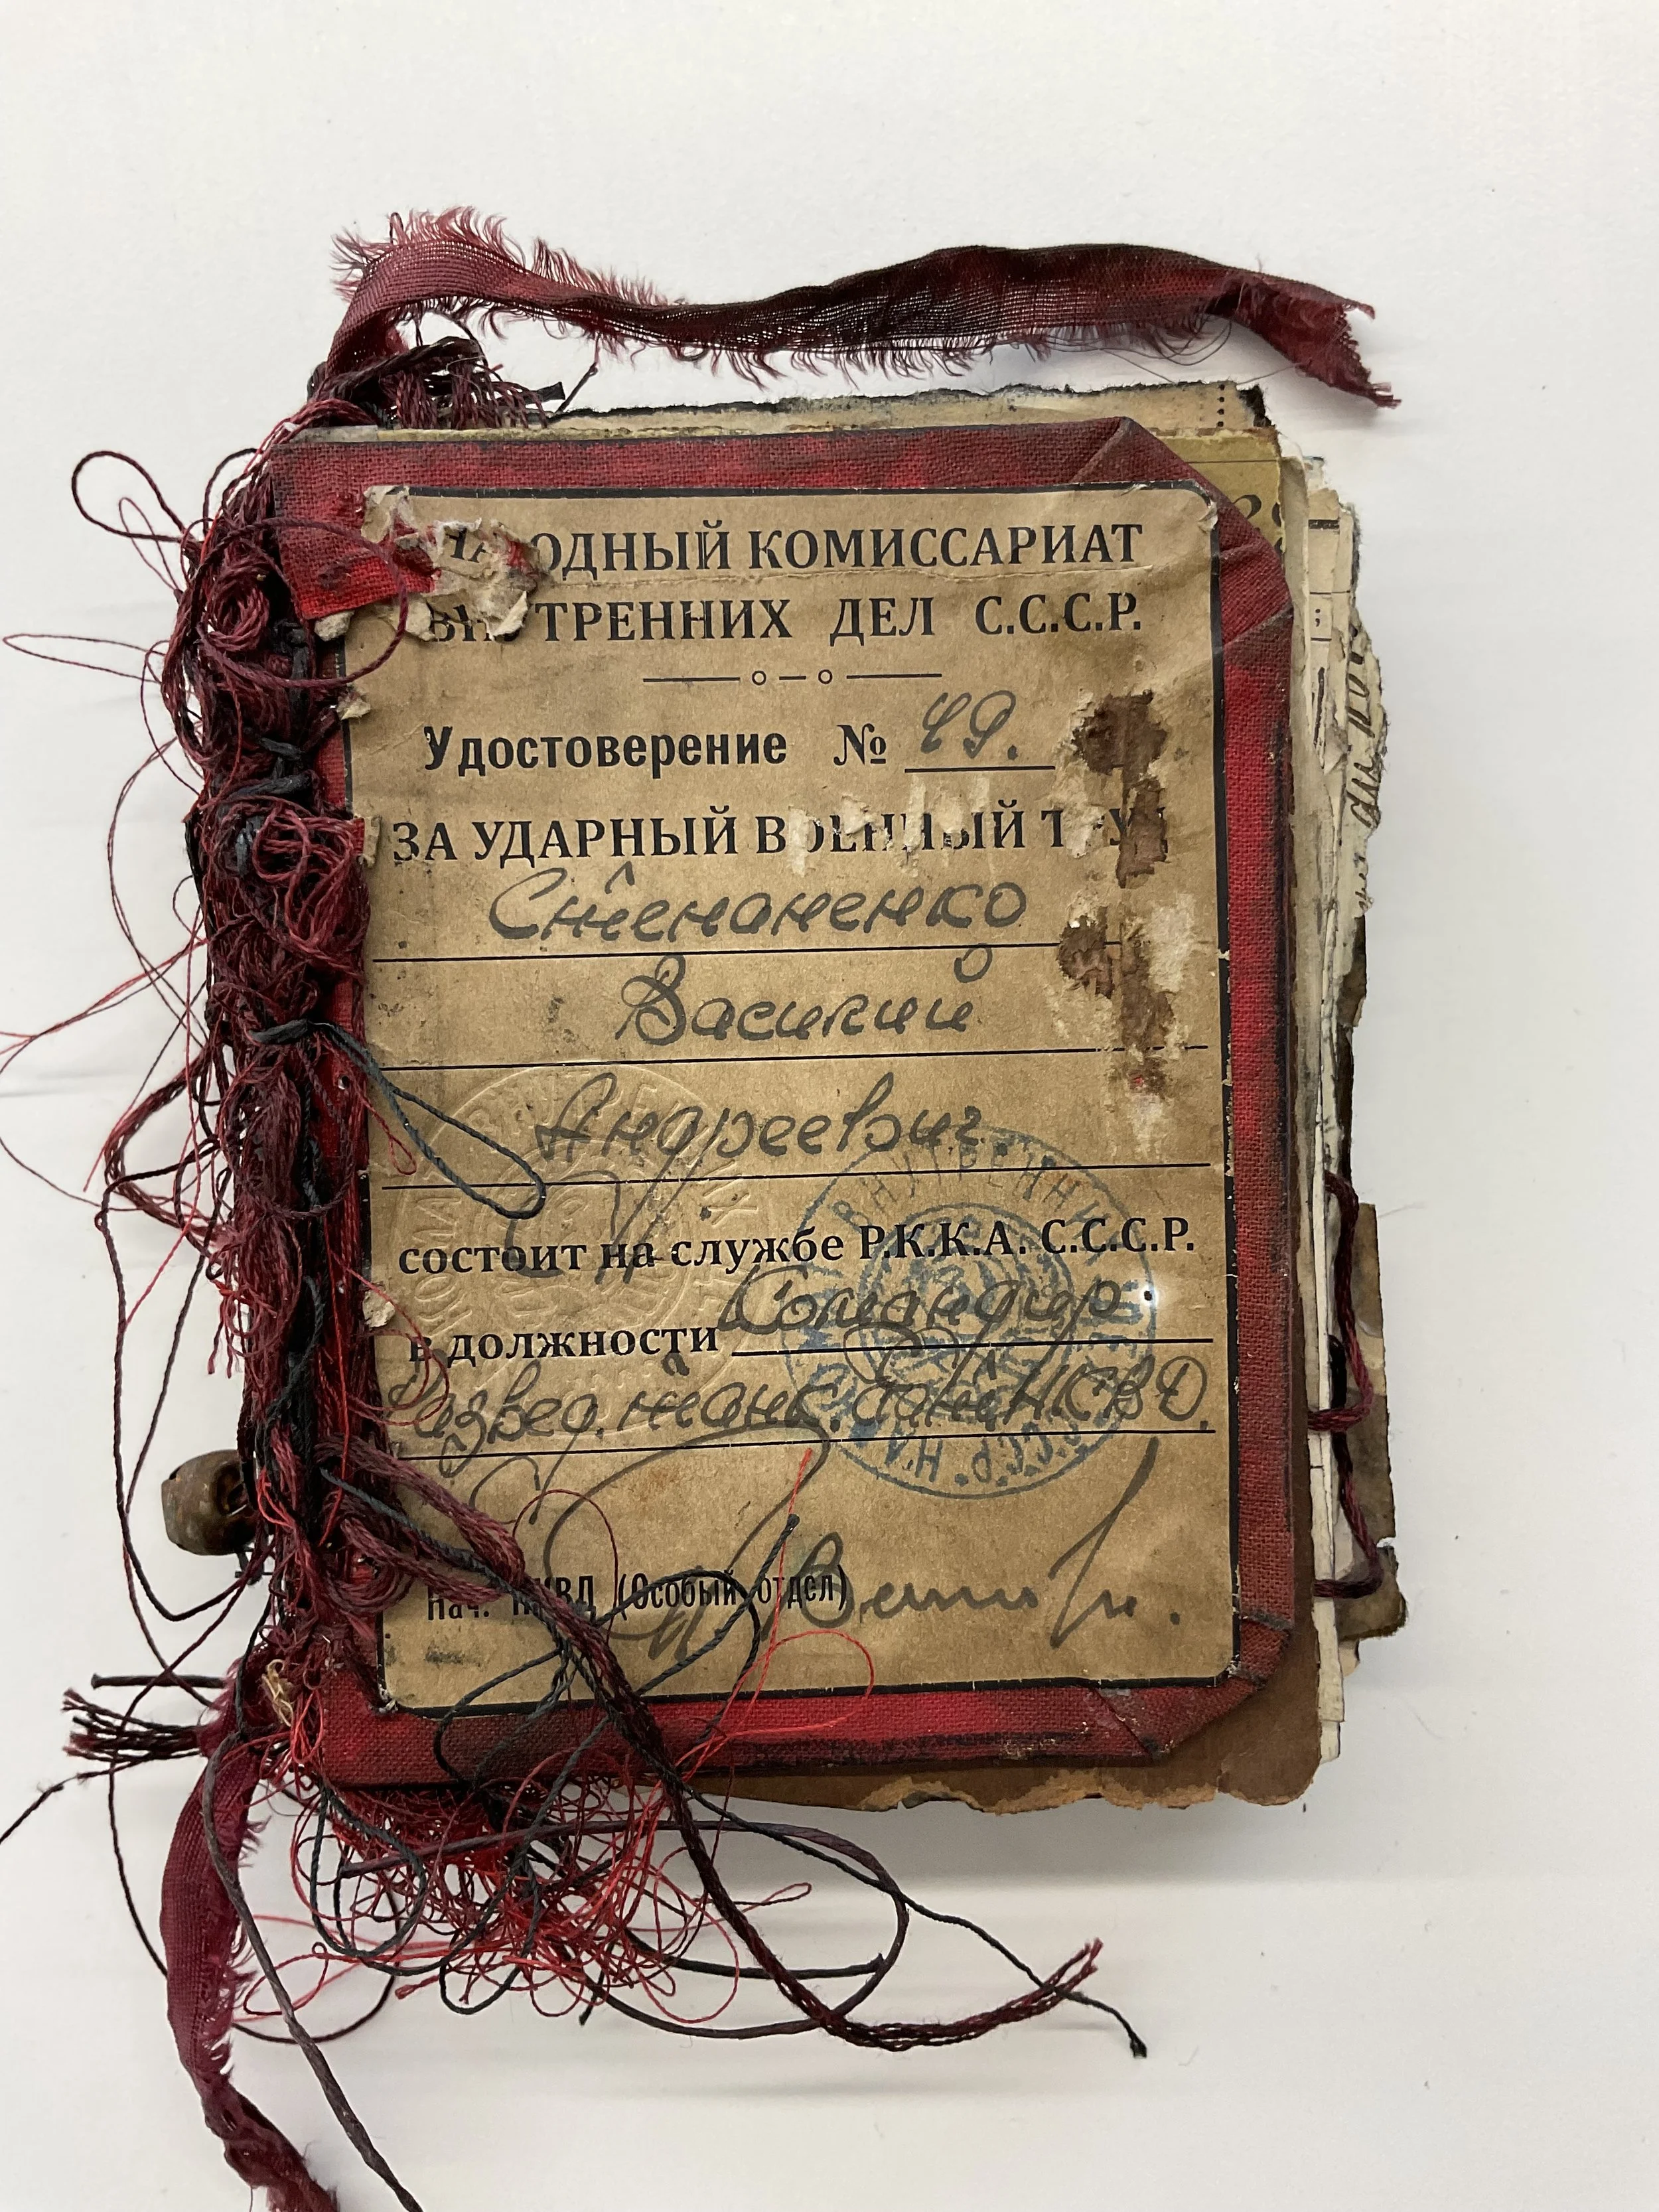 НАРОДНЫЙ КОМИССАРИАТ
ВНУТРЕННИХ ДЕЛ С.С.С.Р.
Удостоверение № 49.
ЗА УДАРНЫЙ ВОЕННЫЙ ТРУД
Степаненко
Василий
Андреевич
состоит на службе Р.К.К.А. С.С.С.Р.
в должности Командир
Развед. танк. бат. НКВД.
Нач. НКВД (Особый отдел)